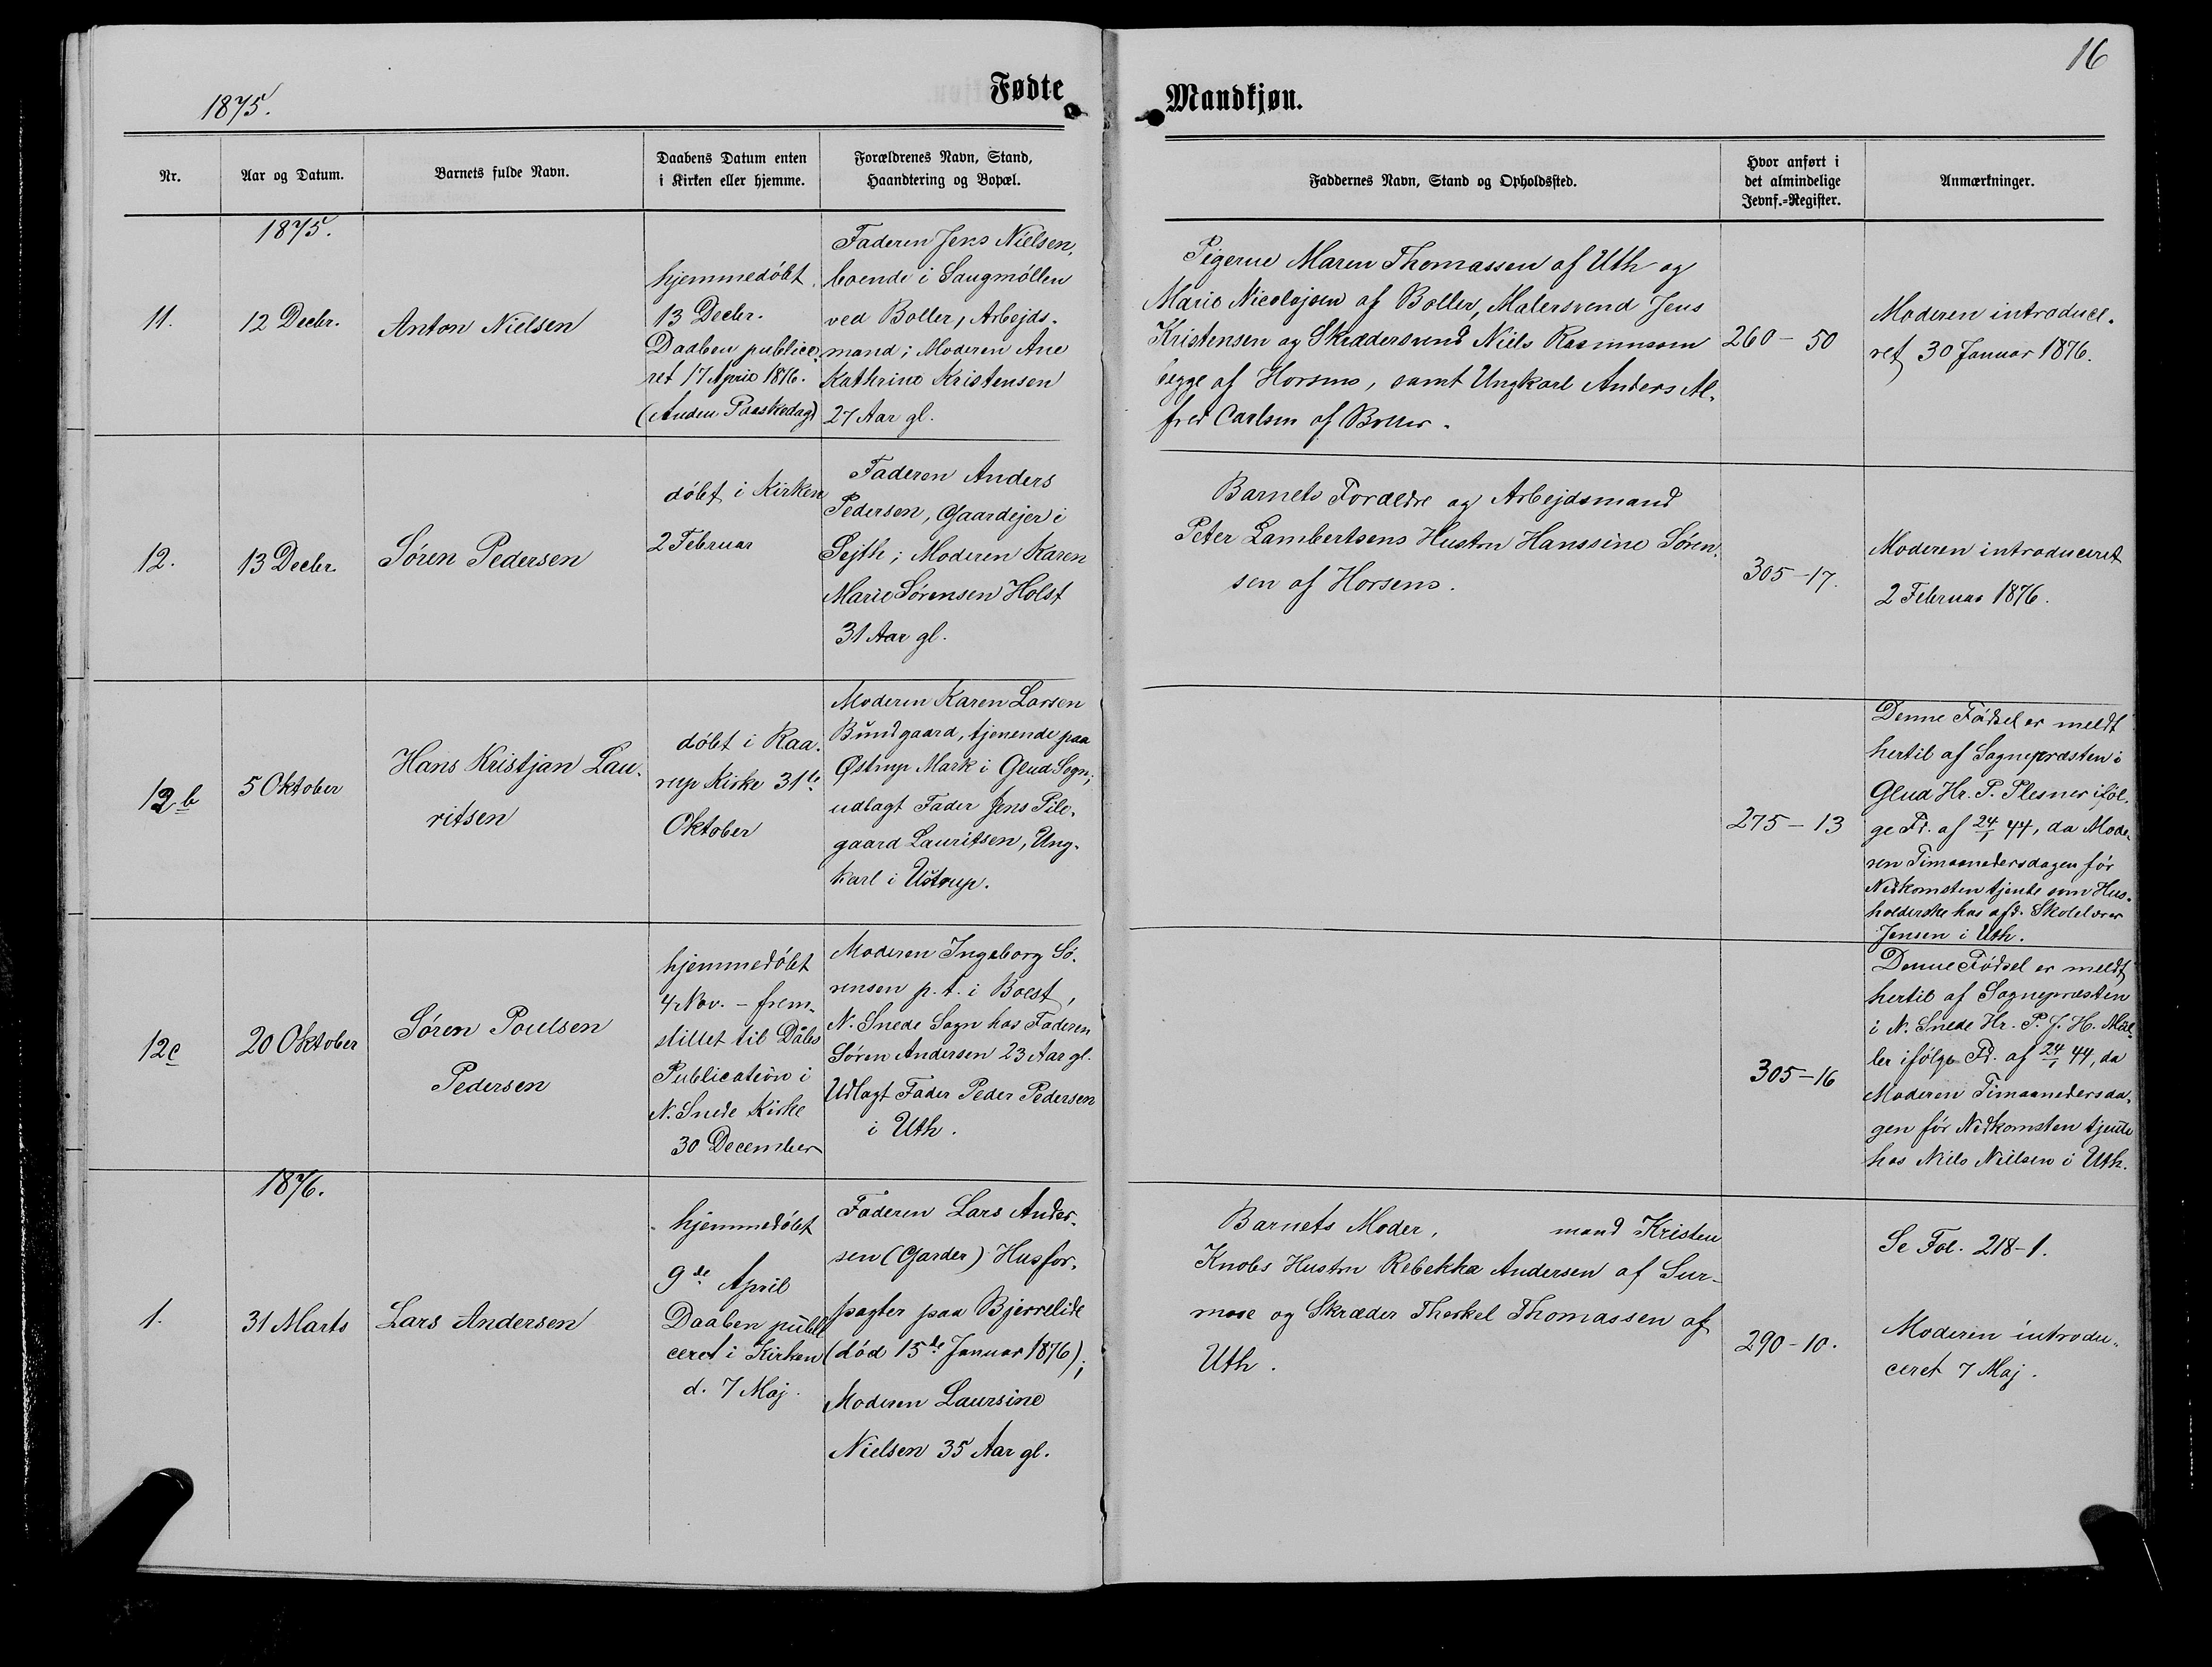 16
1875.
Fødte
Mandkjøn.
Nr.
Aar og Datum.
Barnets fulde Navn.
Daabens Datum enten
i Kirken eller hjemme.
Forældrenes Navn, Stand,
Haandtering og Bopæl.
Faddernes Navn, Stand og Opholdssted.
Hvor anført i
det almindelige
Jevnf.=Register.
Anmærkninger.
1875.
11.
12 Decbr.
Anton Nielsen
hjemmedöbt
13 Decbr.
Daaben publice-
ret 17 April 1876.
(Anden Paaskedag)
Faderen Jens Nielsen,
boende i Saugmöllen
ved Boller, Arbejds-
mand; Moderen Ane
Kathrine Kristensen
27 Aar gl.
Pigerne Maren Thomassen af Uth og
Marie Nicolajsen af Boller, Malersvend Jens
Kristensen og Skræddersvend Niels Rasmussen
begge af Horsens, samt Ungkarl Anders Al-
fred Carlsen af Boller.
260 - 50
Moderen introduce-
ret 30 Januar 1876.
12.
13 Decbr.
Sören Pedersen
döbt i Kirken
2 Februar
Faderen Anders
Pedersen, Gaardejer i
Sejth; Moderen Karen
Marie Sörensen Holst
31 Aar gl.
Barnets Forældre og Arbejdsmand
Peter Lambertsens Hustru Hanssine Sören-
sen af Horsens.
305-17.
Moderen introduceret
2 Februar 1876.
12b
5 Oktober
Hans Kristjan Lau-
ritsen
döbt i Raa-
rup Kirke 31te
Oktober
Moderen Karen Larsen
Bundgaard, tjenende paa
Østrup Mark i Glud Sogn;
udlagt Fader Jens Pile-
gaard Lauritsen, Ung-
karl i Ustrup.
275-13
Denne Födsel er meldt
hertil af Sognepræsten i
Glud Hr. P. Plesner iföl-
ge Fr. af 24/1 44, da Mode-
ren Timaanedersdagen för
Nedkomsten tjente som Hus-
holderske hos afd. Skolelærer
Jensen i Uth.
12c
20 Oktober
Sören Poulsen
Pedersen
hjemmedöbt
4 Nov. - frem-
stillet til Dåbs
Publication i
N. Snede Kirke
30 December
Moderen Ingeborg Sö-
rensen p. t. i Boest,
N. Snede Sogn hos Faderen
Sören Andersen 23 Aar gl.
Udlagt Fader Peder Pedersen
i Uth.
305-16
Denne Födsel er meldt
hertil af Sognepræsten
i N. Snede Hr. P. J. H.
ifölge Fr. af 24/1 44, da
Moderen Timaanedersda-
gen för Nedkomsten tjente
hos Niels Nielsen i Uth.
1876.
1.
31 Marts
Lars Andersen
hjemmedöbt
9de April
Daaben publi-
ceret i Kirken
d. 7 Maj.
Faderen Lars Ander-
sen (Garder) Husfor-
pagter paa Bjerrelide
(död 15de Januar 1876);
Moderen Laursine
Nielsen 35 Aar gl.
Barnets Moder, mand Kristen
Knobs Hustru Rebekka Andersen af Sur-
mose og Skræder Thorkel Thomassen af
Uth.
290-10.
Se Fol. 218-1.
Moderen introdu-
ceret 7 Maj.